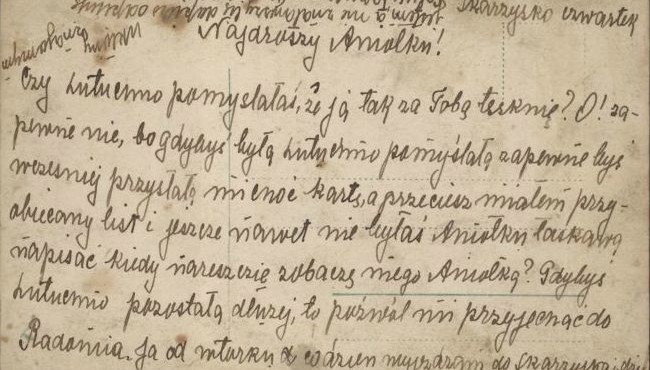 Skarżysko czwartek
Najdroższy Aniołku!
Czy Lutuchno pomyślałaś, że ja tak za Tobą tęsknię? O! za-
pewne nie, bo gdybyś była Lutuchno pomyślała zapewne byś
wcześniej przysłała mi choć kartę, a przeciesz miałem przy-
obiecany list i jeszcze nawet nie byłaś Aniołku łaskawą
napisać kiedy nareszcie zobaczę mego Aniołka? Gdybyś
Lutuchno pozostała dłużej, to pozwól mi przyjechać do
Radomia. Ja od wtorku codzień wyjeżdżam do Skarżyska i